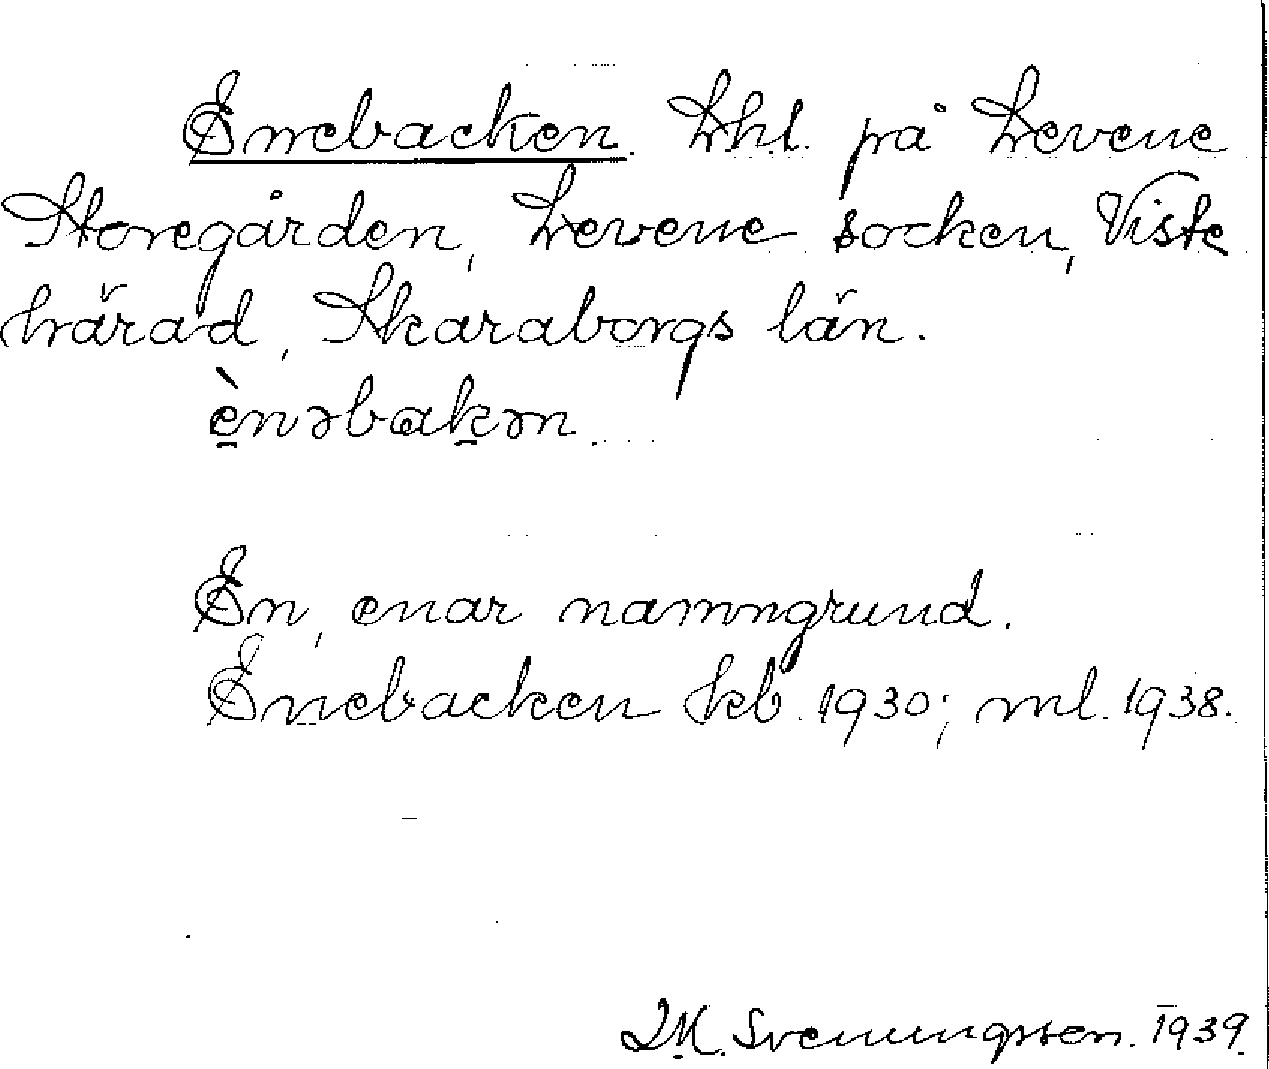 Enebacken. Lhl. på Levene
Storegården, Levene socken, Viste
härad, Skaraborgs län.
ènəbakən.
En, enar namngrund.
Enebacken kb. 1930; ml. 1938.
Svenungsson. 1939.